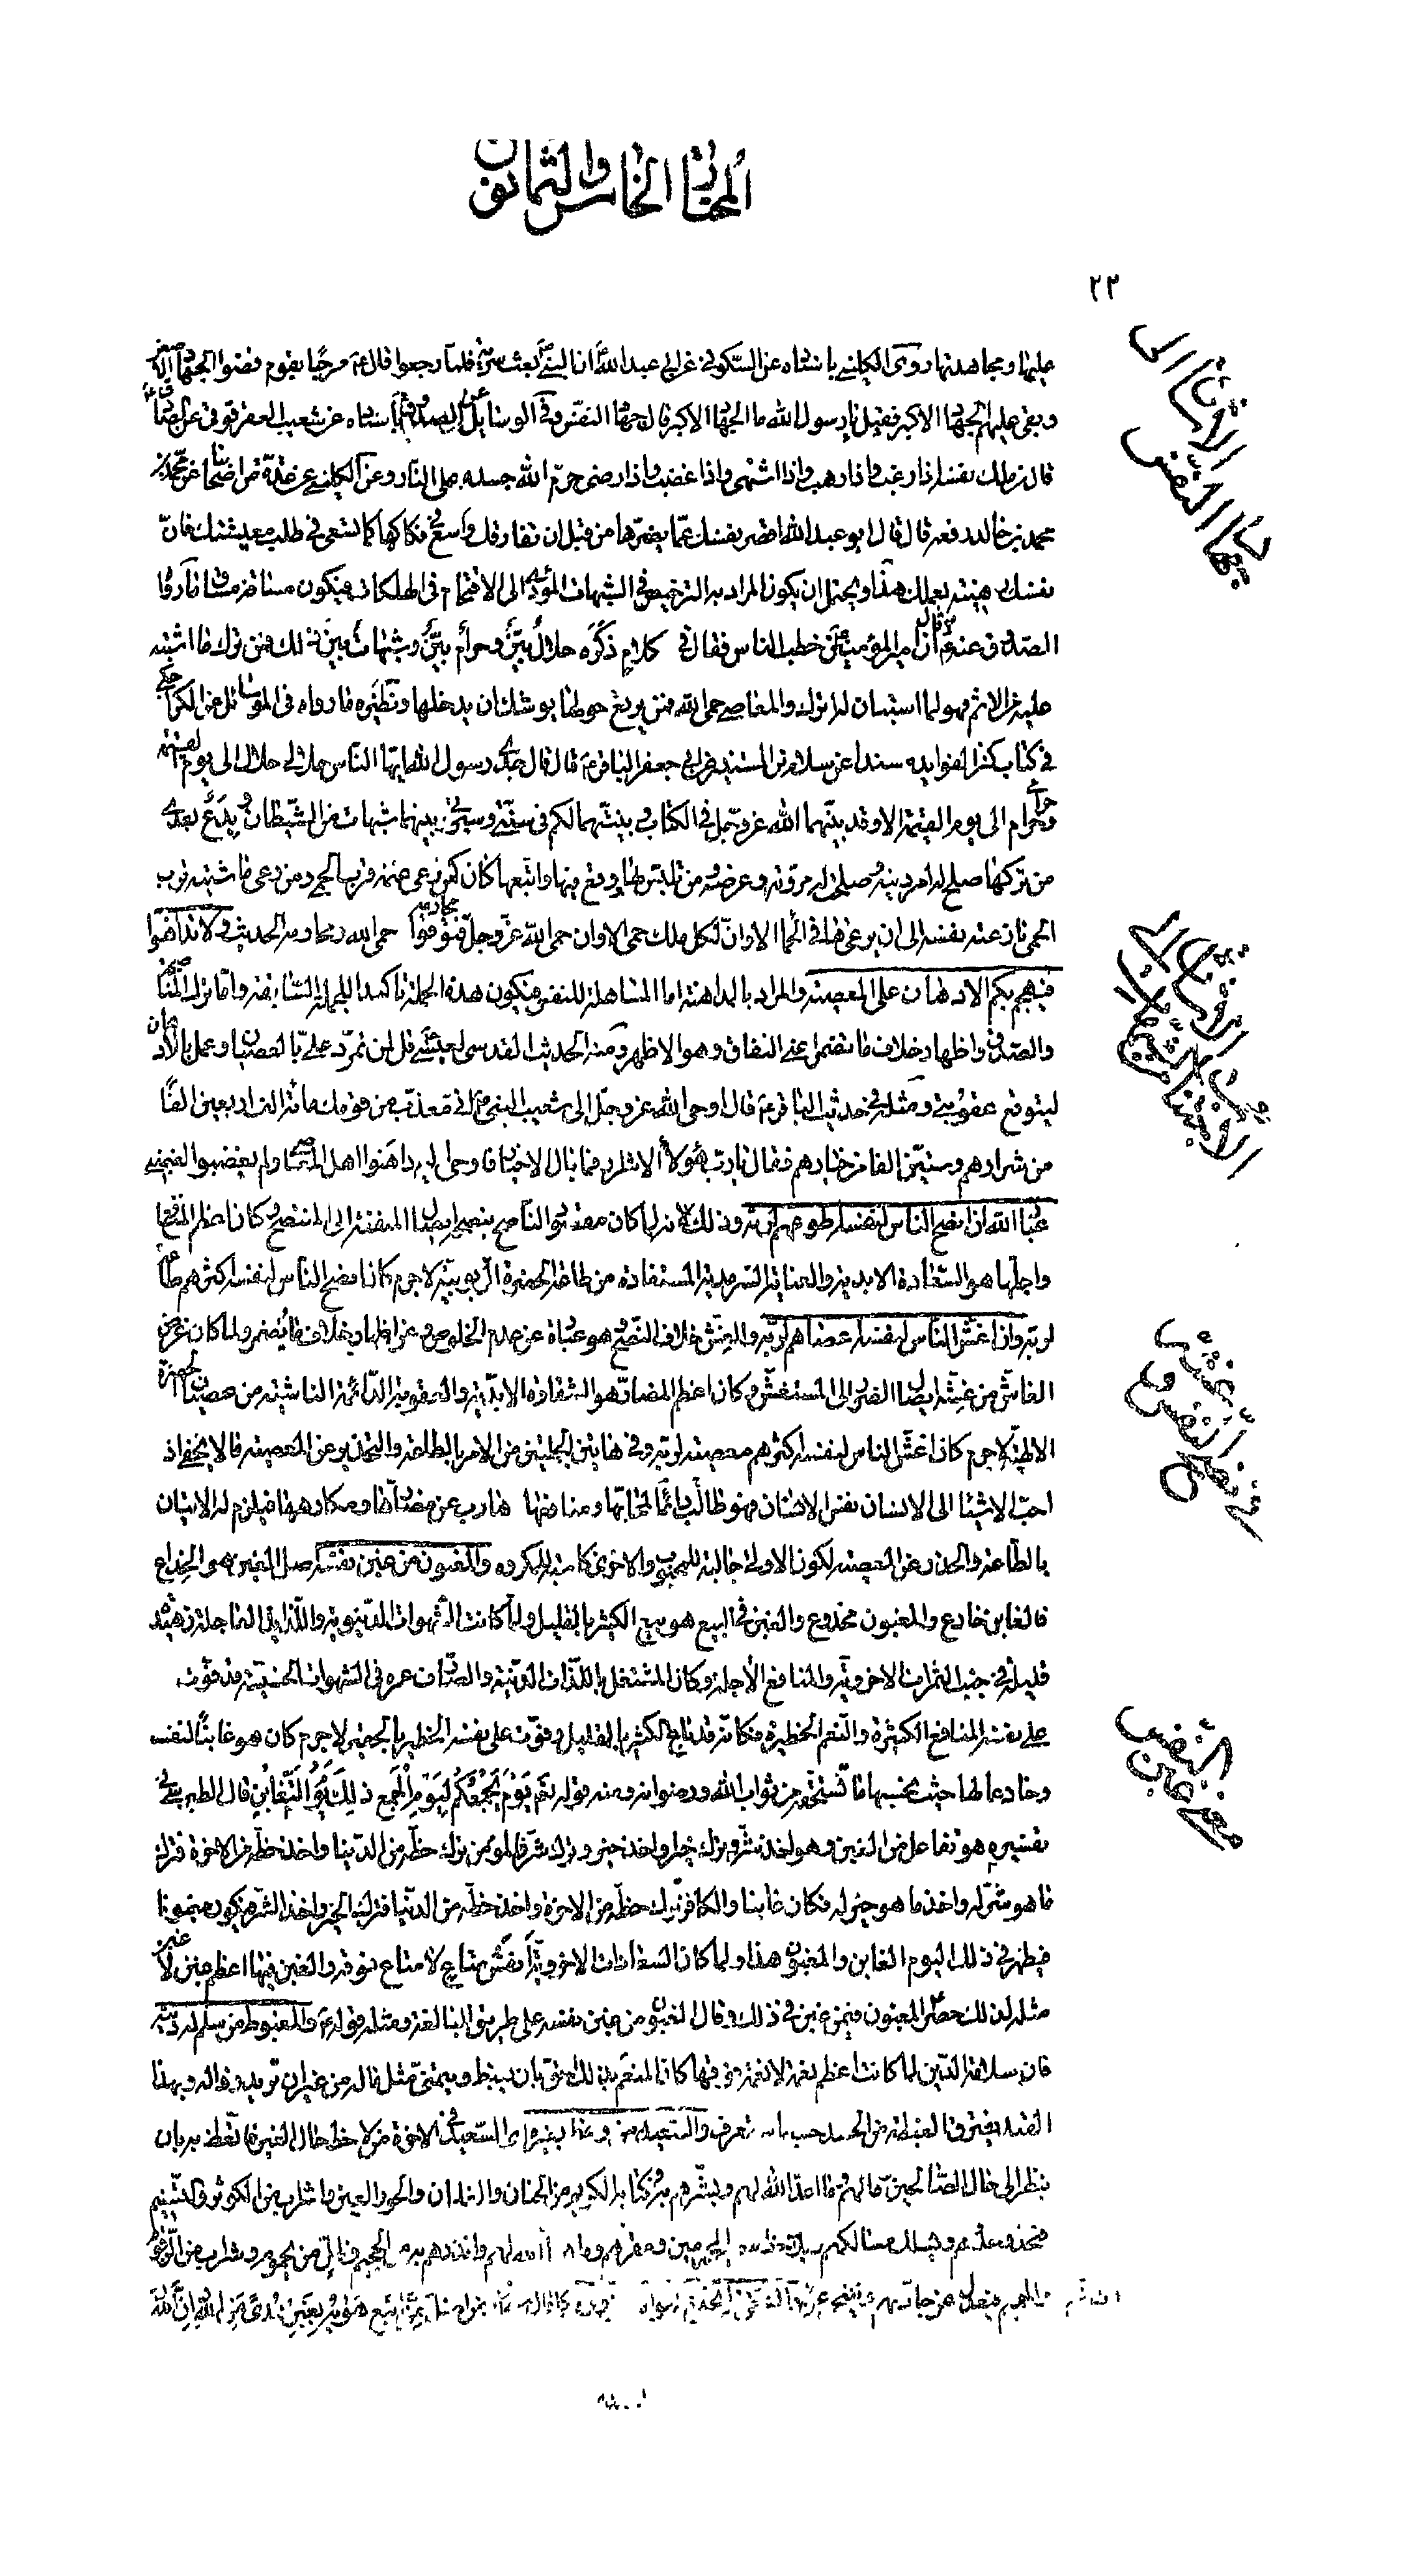 المختار الخامس والثمانون
٢٢
الاشارة الى
جهاد النفس
عليها ومجاهدتها روى الكليني باسناده عن السكوني عن ابي عبد الله ان النبي بعث سرية فلما رجعوا قال مرحبا بقوم قضوا الجهاد الاصغر
وبقي عليهم الجهاد الاكبر فقيل يا رسول الله ما الجهاد الاكبر قال جهاد النفس وفي الوسائل عن الصدوق باسناده عن شعيب العقرقوفي عن الصادق
قال من ملك نفسه اذا رغب واذا رهب واذا اشتهى واذا غضب واذا رضي حرم الله جسده على النار وعن الكليني عن عدة من اصحابنا عن احمد بن
محمد بن خالد رفعه قال قال ابو عبد الله اقصر نفسك عما يضرها من قبل ان تفارقك واسع في فكاكها كما تسعى في طلب معيشتك فان
نفسك رهينة بعملك هذا ويحتمل ان يكون المراد به الترخيص في الشبهات المؤدية الى الاقتحام في الهلكات فيكون مساقه مساق ما رواه
الصدوق عنه قال ان امير المؤمنين خطب الناس فقال في كلام ذكره حلال بين وحرام بين وشبهات بين ذلك فمن ترك ما اشتبه
عليه من الاثم فهو لما استبان له اترك والمعاصي حمى الله فمن يرتع حولها يوشك ان يدخلها ونظيره ما رواه في الوسائل عن الكراجكي
في كتاب كنز الفوايد مسندا عن سلام بن المستنير عن ابي جعفر الباقر قال قال جدي رسول الله ايها الناس حلالي حلال الى يوم القيمة
وحرامي حرام الى يوم القيمة الا وقد بينهما الله عز وجل في الكتاب وبينتهما لكم في سنتي وسيرتي وبينهما شبهات من الشيطان وبدع بعدي
من تركها صلح له امر دينه وصلحت له مروته وعرضه ومن تلبس بها ووقع فيها واتبعها كان كمن رعى غنمه قرب الحمى ومن رعى ماشيته قرب
الحمى نازعته نفسه الى ان يرعاها في الحمى الا وان لكل ملك حمى الا وان حمى الله عز وجل محارمه فتوقوا حمى الله ومحارمه الحديث ولا تداهنوا
فيهجم بكم الادهان على المعصية والمراد بالمداهنة اما المساهلة للنفس فيكون هذه الجملة تاكيدا للجملة السابقة واما ترك المناصحة
والصدق واظهار خلاف ما تضمر اعني النفاق وهو الاظهر ومنه الحديث القدسي لعيسى قل لمن تمرد علي بالعصيان وعمل بالادهان
ليتوقع عقوبتي ومثله في حديث الباقر قال اوحى الله عز وجل الى شعيب النبي اني معذب من قومك مائة الف اربعين الفا
من شرارهم وستين الفا من خيارهم فقال يا رب هؤلاء الاشرار فما بال الاخيار فاوحى اليه داهنوا اهل المعاصي ولم يغضبوا لغضبي
عباد الله ان انصح الناس لنفسه اطوعهم لربه وذلك لانه لما كان مقصود الناصح بنصحه ايصال المنفعة الى المنتصح وكان اعظم المنافع
واجلها هو السعادة الابدية والعناية السرمدية المستفادة من طاعة الحضرة الربوبية لاجرم كان انصح الناس لنفسه اكثرهم طاعة
لربه وان اغش الناس لنفسه اعصاهم لربه والغش خلاف النصح وهو عبارة عن عدم الخلوص وعن اظهار خلاف ما يضمر ولما كان غرض
الغاش من غشه ايصال الضرر الى المستغش وكان اعظم المضار هو الشقاوة الابدية والعقوبة الدائمة الناشئة من عصيان الحضرة
الالهية لاجرم كان اغش الناس لنفسه اكثرهم معصية لربه وفي هاتين الجملتين من الامر بالطاعة والتحذير عن المعصية ما لا يخفى اذ
احب الاشياء الى الانسان نفس الانسان فهو طالب دائما لمحابها ومنافعها هارب عن مضارها ومكارهها فيلزم له الاتيان
بالطاعة والحذر عن المعصية لكون الاولى جالبة للمحبوب والاخرى كاسبة للمكروه والمغبون من غبن نفسه اصل الغبن هو الخداع
فالغابن خادع والمغبون مخدوع والغبن في البيع هو بيع الكثير بالقليل ولما كانت الشهوات الدنيوية واللذايذ العاجلة زهيدة
قليلة في جنب الثمرات الاخروية والمنافع الآجلة وكان المشتغل باللذات الدنية والصارف عمره في الشهوات الخسيسة قد فوت
على نفسه المنافع الكثيرة والنعم الخطيرة فكانه قد باع الكثير بالقليل وفوت على نفسه الخطير بالحقير لاجرم كان هو غابنا لنفسه
وخادعا لها حيث بخسها ما تستحقه من ثواب الله ورضوانه ومنه قوله تعالى يَوْمَ يَجْمَعُكُمْ لِيَوْمِ الْجَمْعِ ذلِكَ يَوْمُ التَّغابُنِ قال الطبرسي في
تفسيره هو تفاعل من الغبن وهو اخذ شر وترك خير او اخذ خير وترك شر فالمؤمن ترك حظه من الدنيا واخذ حظه من الاخرة فترك
ما هو شر له واخذ ما هو خير له فكان غابنا والكافر ترك حظه من الاخرة واخذ حظه من الدنيا فترك الخير واخذ الشر فيكون مغبونا
فيظهر في ذلك اليوم الغابن والمغبون هذا ولما كان السعادات الاخروية انفس متاع لا متاع فوقه والغبن فيها اعظم غبن لا غبن
مثله لذلك حصر المغبون فيمن غبن في ذلك وقال المغبون من غبن نفسه على طريق المبالغة ومثله قوله والمغبوط من سلم له دينه
فان سلامة الدين لما كانت اعظم نعمة لا نعمة فوقها كان المنعم بذلك احق بان يغبط ويتمنى مثل ماله من غير ان تريد زواله وبهذا
القيد يفترق الغبطة من الحسد حسب ما تعرف والسعيد من وعظ بغيره اي السعيد في الاخرة من لاحظ حال الغير فاتعظ به بان
ينظر الى حال الصالحين وما لهم وما اعد الله لهم وبشرهم به في كتابه الكريم من الجنان والغلمان والحور العين وشراب من الكوثر والتسنيم
فيحذو حذوهم ويسلك مسالكهم ويلاحظ المجرمين ومقرهم وما اعد الله لهم وانذرهم به من الجحيم وظل من يحموم وشراب من الزقوم
الاشارة الى
الاجتناب عن الشبهات
معنى غش
النفس
معنى غبن
النفس